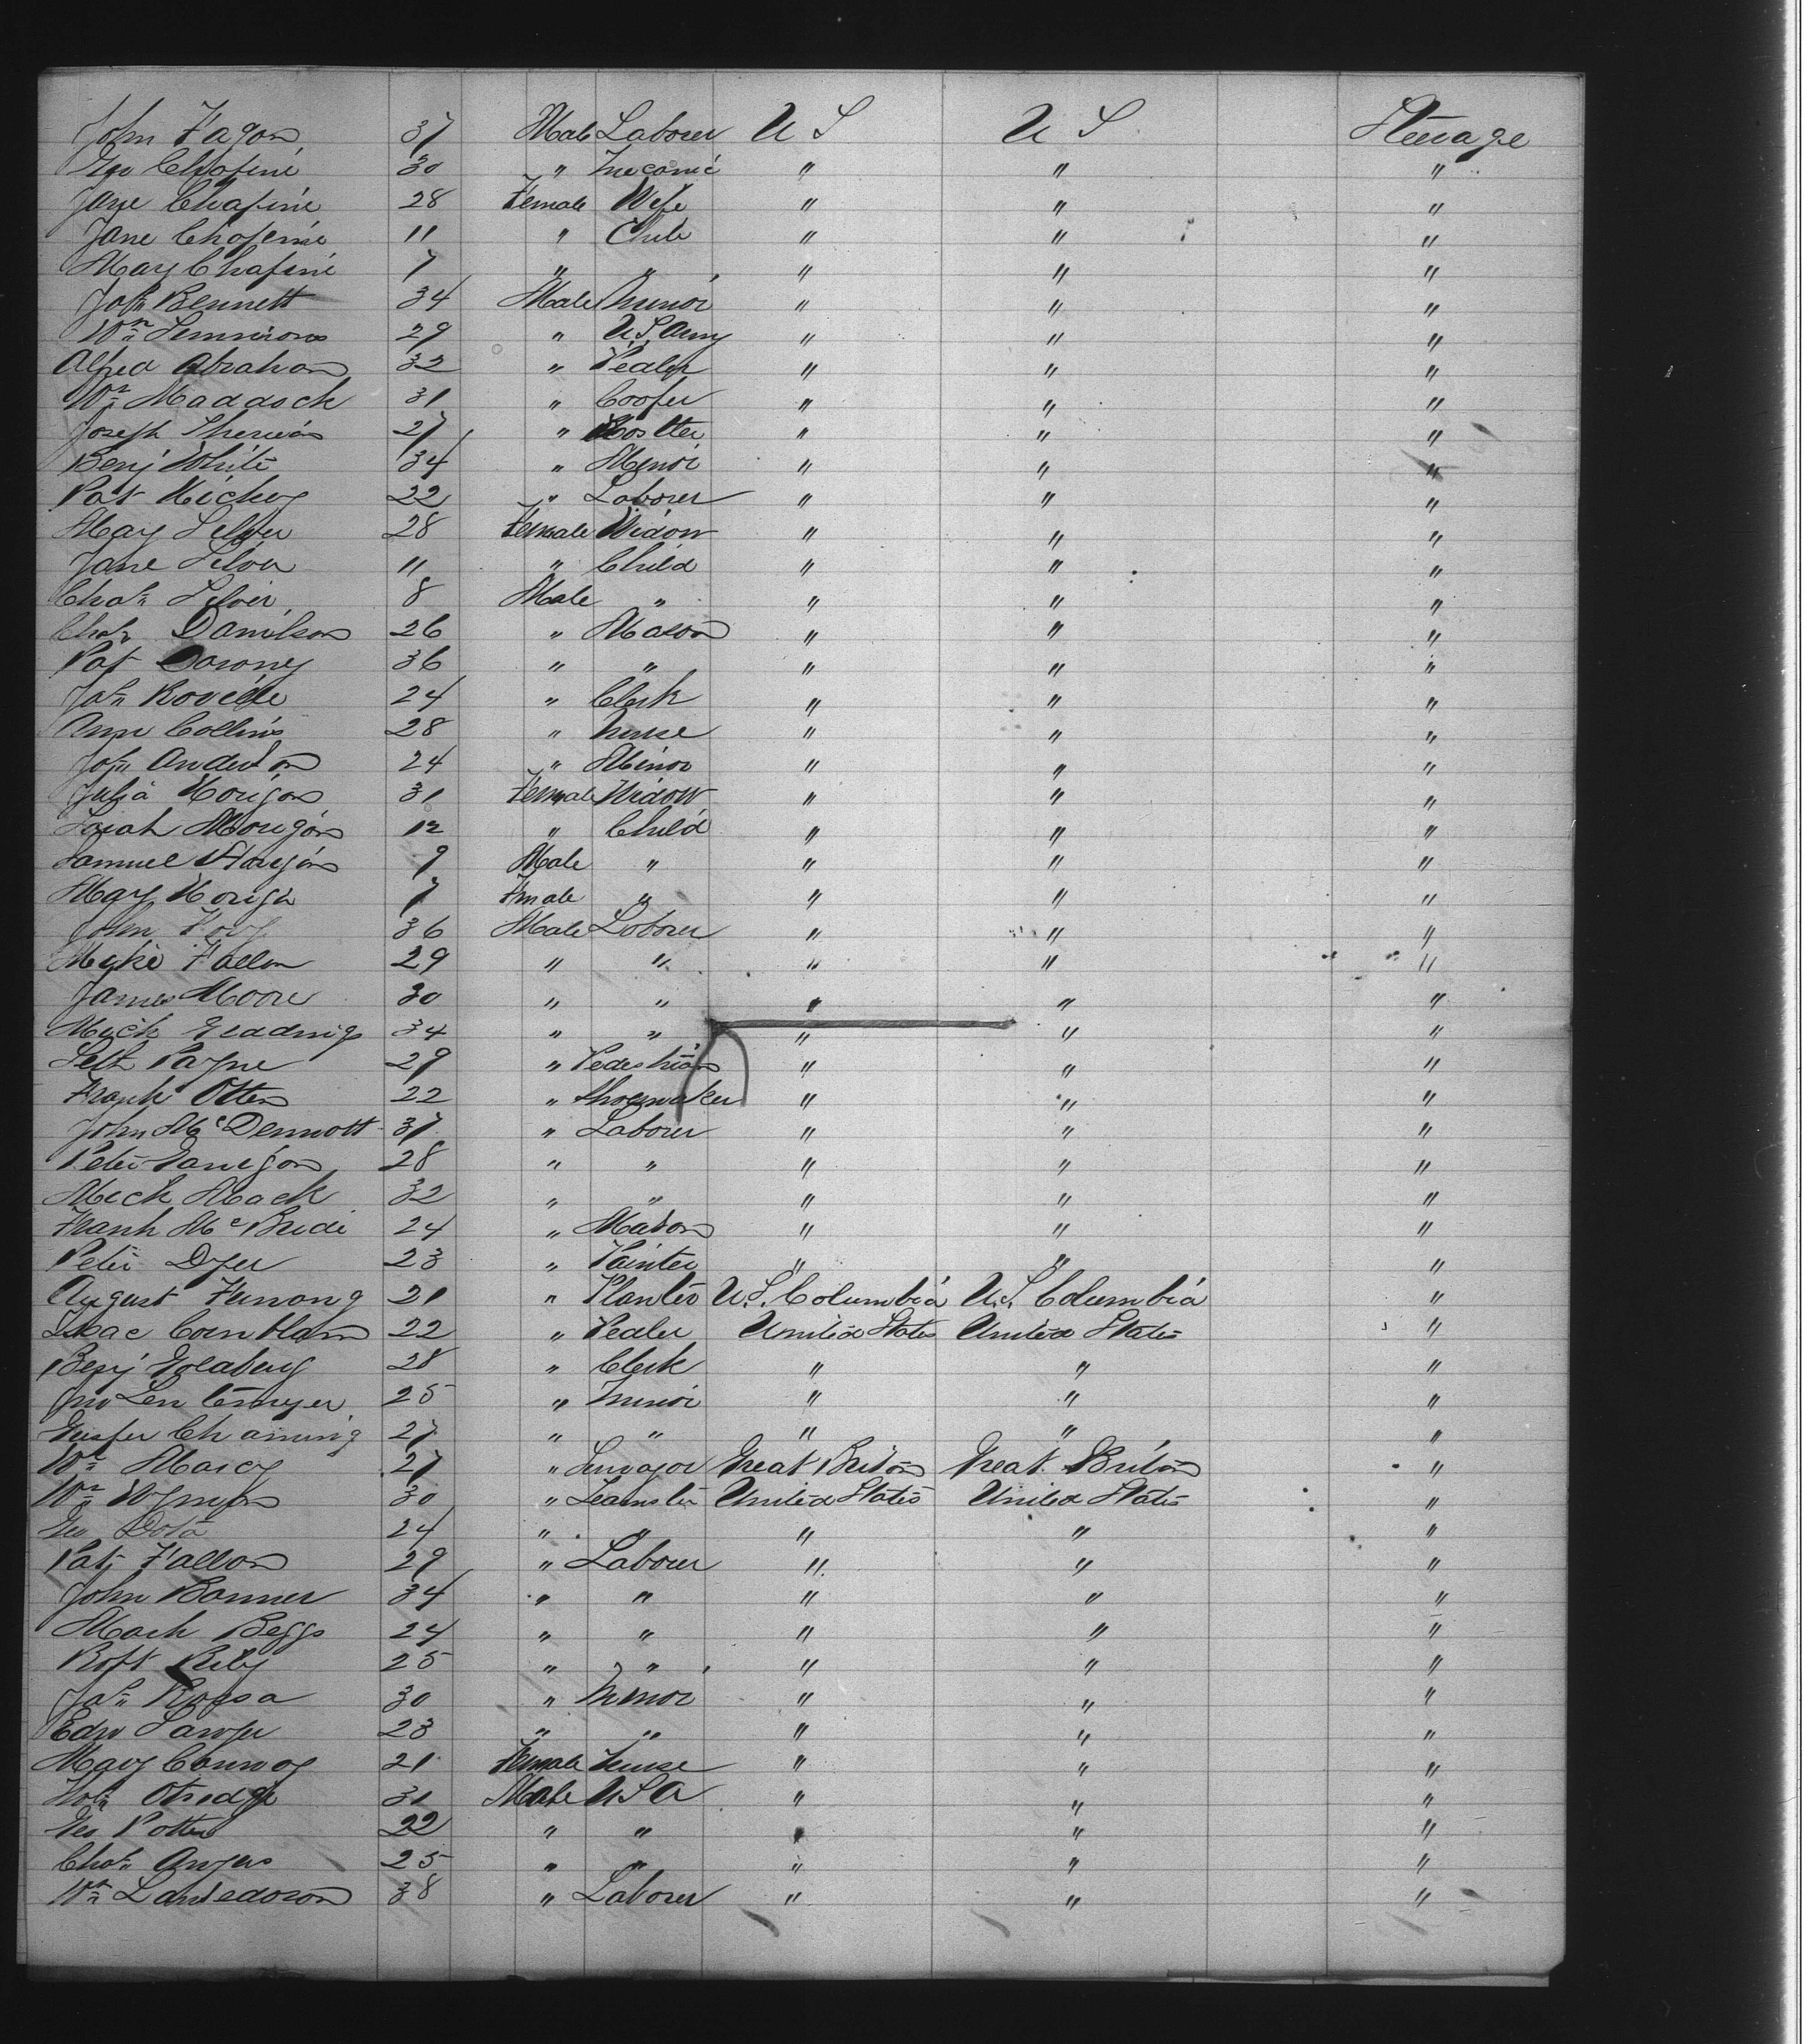 John Fagon 37 Male Laborer U S U S Steerage
Geo Chafine 30 " Mecanic " " "
Jane Chafine 28 Female Wife " " "
Jane Chafine 11 " Chile " " "
Mary Chafine 7 " " " " "
Joh Bennett 34 Male Minor " " "
Wm Simmions 29 " U.S. Army " " "
Alfred Abraham 32 " Pedler " " "
Wm Maddock 31 " Cooper " " "
Joseph 27 " Hostler " " "
Benj White 34 " Minor " " "
Pat Hickey 22 " Laborer " " "
Mary Silver 28 Female Widow " " "
Jane Silva 11 " Child " " "
Chas Silver 8 Male " " " "
Chas Danilson 26 " Mason " " "
Pat Downey 36 " " " " "
Jas 24 " Clerk " " "
Ann Collins 28 " Nurse " " "
Joh Anderson 24 " Minor " " "
Julia Horigan 31 Female Widow " " "
Sarah Horigan 12 " Child " " "
Samuel Horigan 9 Male " " " "
Mary Horign 7 Fmale " " " "
John Foy 36 Male Laborer " " "
Myke Fallon 29 " " " " "
James Moore 30 " " " " "
Mick 34 " " " " "
Seth Payne 29 " Pedestrian " " "
Frank Otten 22 " Shoemaker " " "
John McDermott 37 " Laborer " " "
Peter 28 " " " " "
Mick Mack 32 " " " " "
Frank McBride 24 " Mason " " "
Peter Dyer 23 " Painter " " "
August 21 " Planter U.S. Columbia U.S. Columbia "
Isaac Cornblam 22 " Pedler United States United States "
Benj Goldberg 28 " Clerk " " "
Jno 25 " Minor " " "
Chaining 27 " " " " "
Wm Marcy 27 " Great Britain Great Britain "
Wm Wyman 30 " Teamster United States United States "
Geo Dota 24 " " " " "
Pat Fallon 29 " Laborer " " "
John Bonner 34 " " " " "
Mark Beggs 24 " " " " "
Robt Riley 25 " " " " "
Jas Rossa 30 " Minor " " "
Edw Sawyer 23 " " " " "
Mary Conway 21 Female Nurse " " "
31 Male U S A " " "
Geo Potter 22 " " " " "
Chas Angus 25 " " " " "
Wm 38 " Laborer " " "